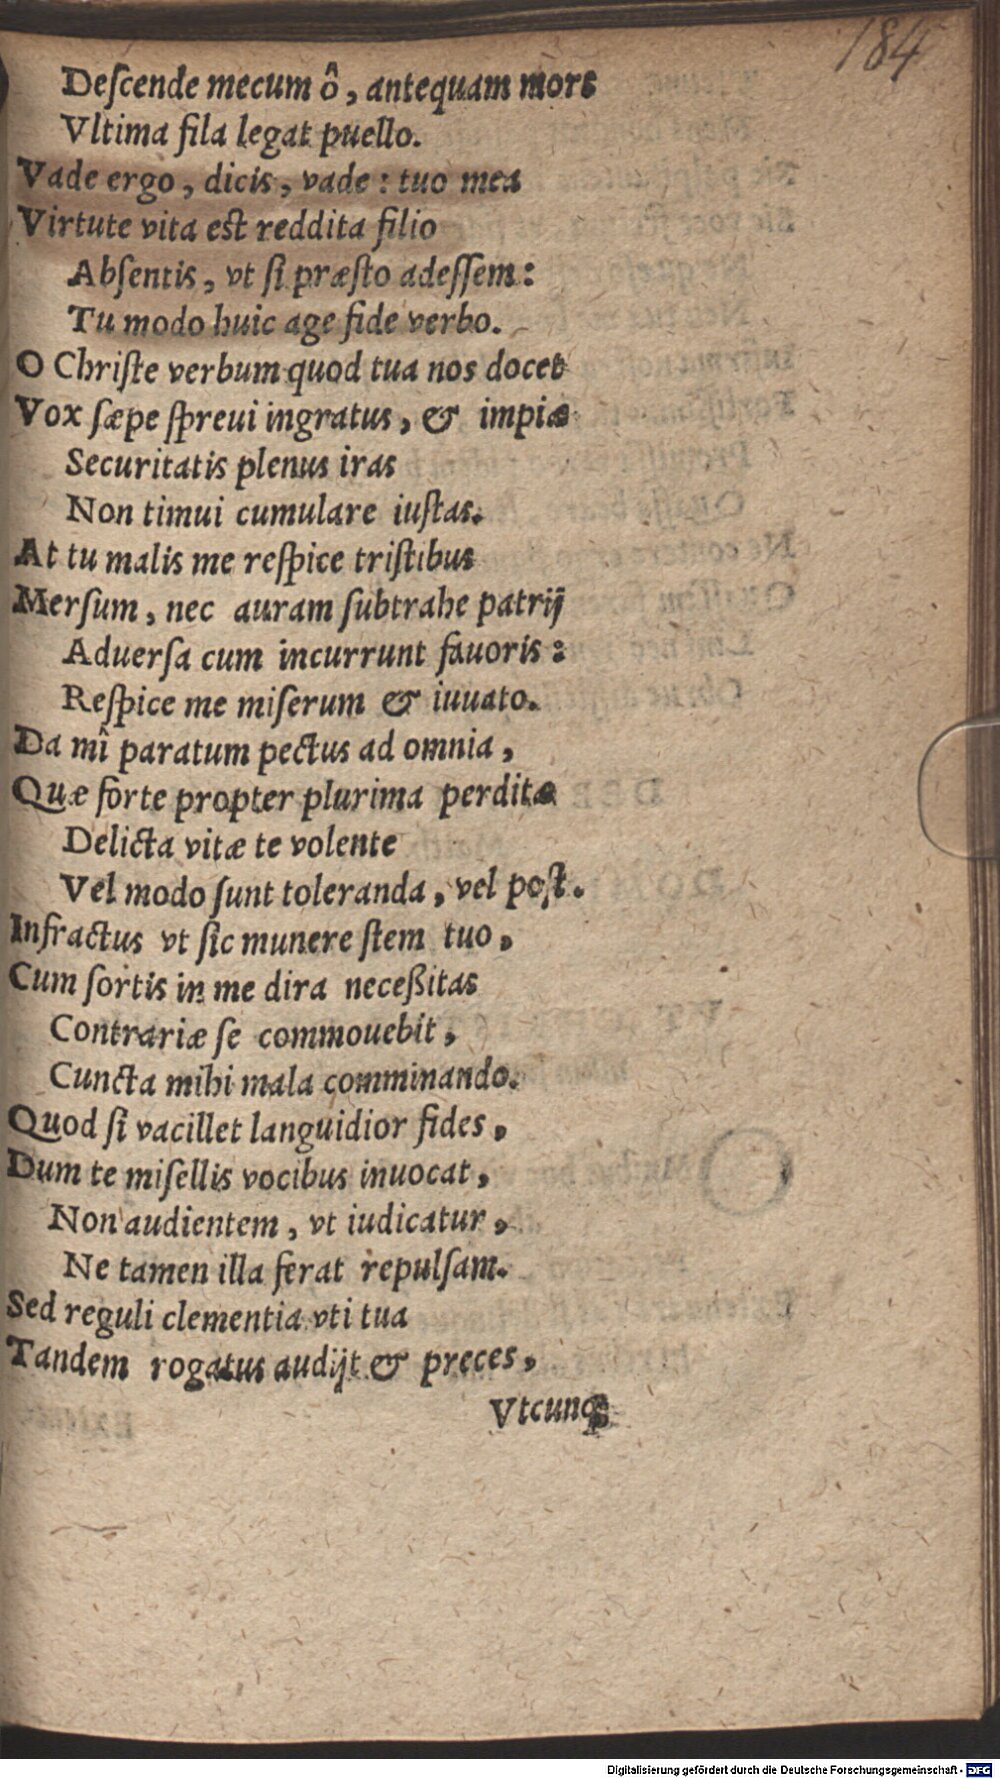 184
Deſcende mecum ô, antequam mors
Vltima fila legat puello.
Vade ergo, dicis, vade: tuo mea
Virtute vita est reddita filio
Abſentis, vt ſi præſto adeſſem:
Tu modo huic age fide verbo.
O Chriſte verbum quod tua nos docet
Vox ſæpe ſpreui ingratus, & impiæ
Securitatis plenus iras
Non timui cumulare iuſtas.
At tu malis me reſpice triſtibus
Merſum, nec auram ſubtrahe patrij
Aduerſa cum incurrunt fauoris:
Reſpice me miſerum & iuuato.
Da mî paratum pectus ad omnia,
Quæ forte propter plurima perditæ
Delicta vitæ te volente
Vel modo ſunt toleranda, vel poſt.
Infractus vt ſic munere ſtem tuo,
Cum ſortis in me dira neceßitas
Contrariæ ſe commouebit,
Cuncta mihi mala comminando.
Quod ſi vacillet languidior fides,
Dum te miſellis vocibus inuocat,
Non audientem, vt iudicatur,
Ne tamen illa ferat repulſam.
Sed reguli clementia vti tua
Tandem rogatus audijt & preces,
Vtcunq;
Digitalisierung gefördert durch die Deutsche Forschungsgemeinschaft - DFG